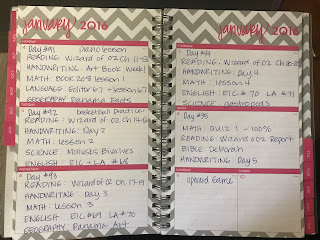 January 2016
Day #91 piano lesson
READING: Wizard of Oz Ch 11-13
HANDWRITING: Art Book Week 1
MATH: Book 208 lesson 1
LANGUAGE: Editor #67 - lesson #67
GEOGRAPHY: Panama Facts
Day #92 basketball practice
READING: Wizard of Oz Ch 14-16
HANDWRITING: Day 2
MATH: Lesson 2
SCIENCE: Mollusks Bivalves
ENGLISH: EIC - LA #68
Day #93
READING: Wizard of Oz Ch 17-19
HANDWRITING: Day 3
MATH: Lesson 3
ENGLISH: EIC #69 LA #70
GEOGRAPHY: Panama Art
January 2016
Day #94
READING: Wizard of Oz Ch 20-22
HANDWRITING: Day 4
MATH: Lesson 4
ENGLISH: EIC #70 LA #71
SCIENCE: gastropods
Day #95
MATH: Quiz 1 - 100%
READING: Wizard of Oz Report
BIBLE: Deborah
HANDWRITING: Day 5
Upward Game